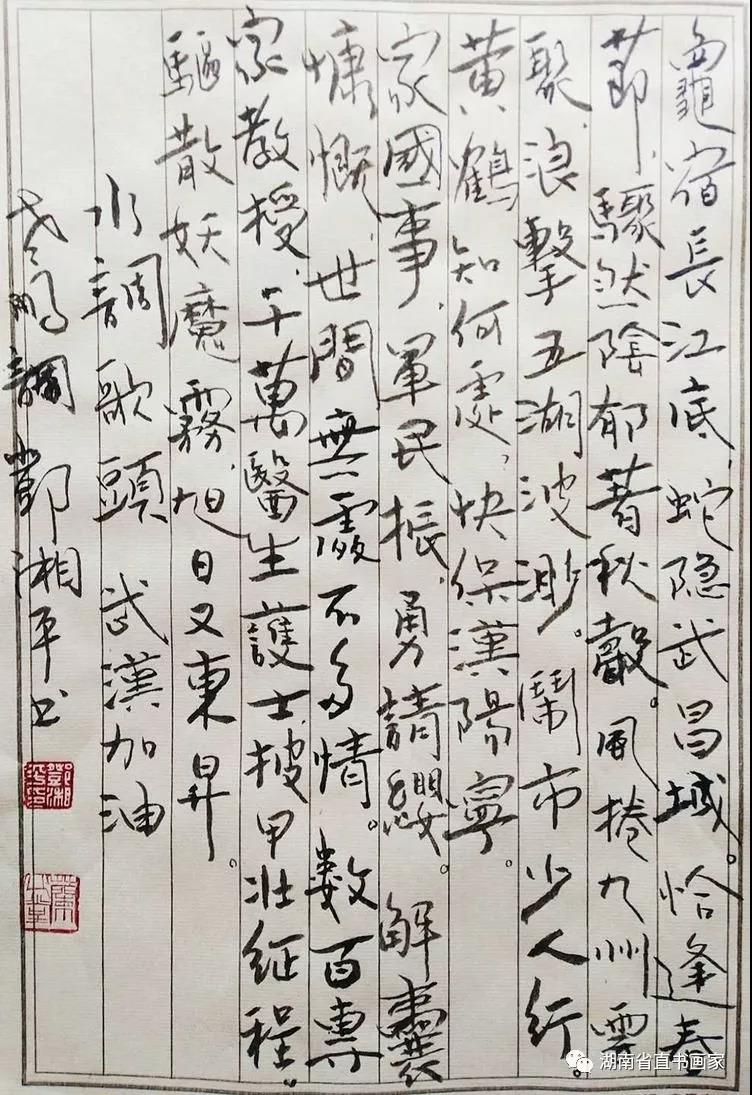 龜宿長江底,蛇隐武昌城。恰逢春
莭,驟然陰郁秋聲。風捲九州雲
聚,浪擊五湖波渺。鬧市少人行
黄鶴知何處,快保漢陽寧。
家國事,軍民振,勇請纓。解囊
慷慨,世間無處不多情。數百專
家教授,千萬醫生護士披甲壮征程。
驅散妖魔霧,旭日又東昇。
水調歌頭 武漢加油
鵬調 鄧湘平书
湖南省直书画家